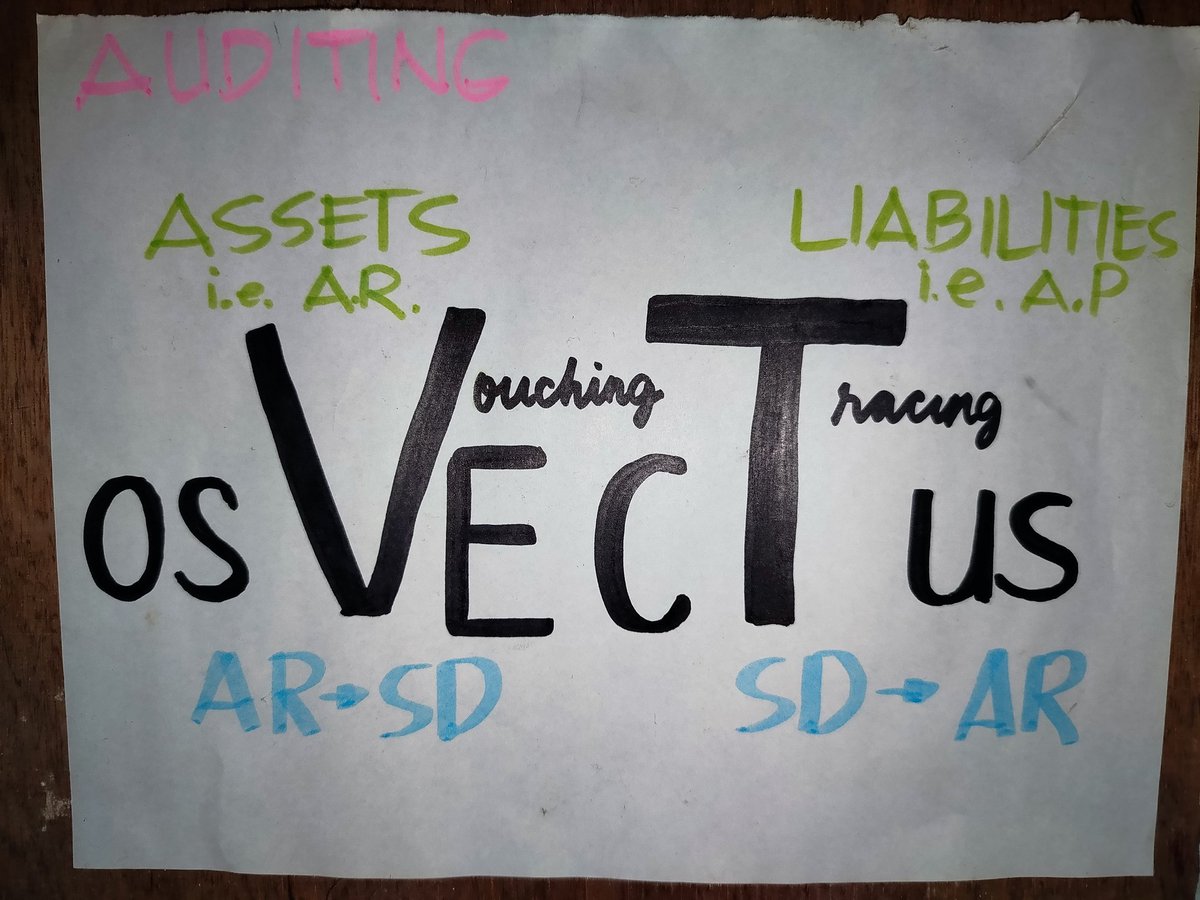 AUDITING
ASSETS LIABILITIES
i.e. A.R. i.e. A.P
Vouching Tracing
OS VECT US
AR→SD SD→AR